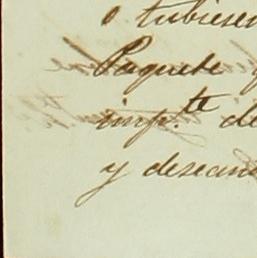 o tubiesen
Paquete
imp.te de
y desean